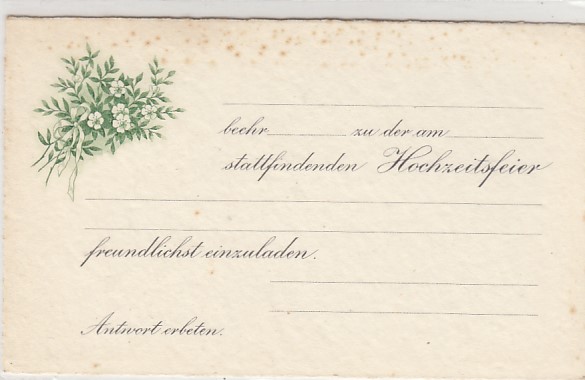 beehr zu der am
stattfindenden Hochzeitsfeier
freundlichst einzuladen.
Antwort erbeten.